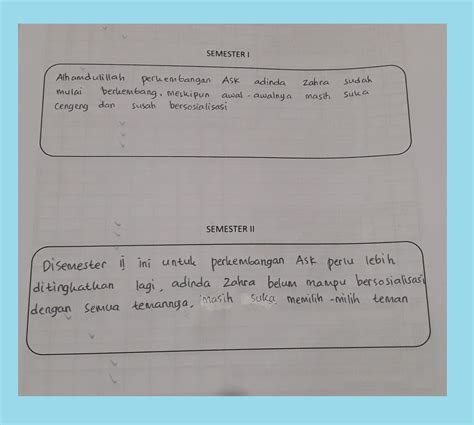 SEMESTER I
Alhamdulillah perkembangan Ask adinda zahra sudah
mulai berkembang, meskipun awal-awalnya masih suka
cengeng dan susah bersosialisasi
SEMESTER II
Disemester ii ini untuk perkembangan Ask perlu lebih
ditingkatkan lagi, adinda zahra belum mampu bersosialisasi
dengan semua temannya, masih suka memilih-milih teman